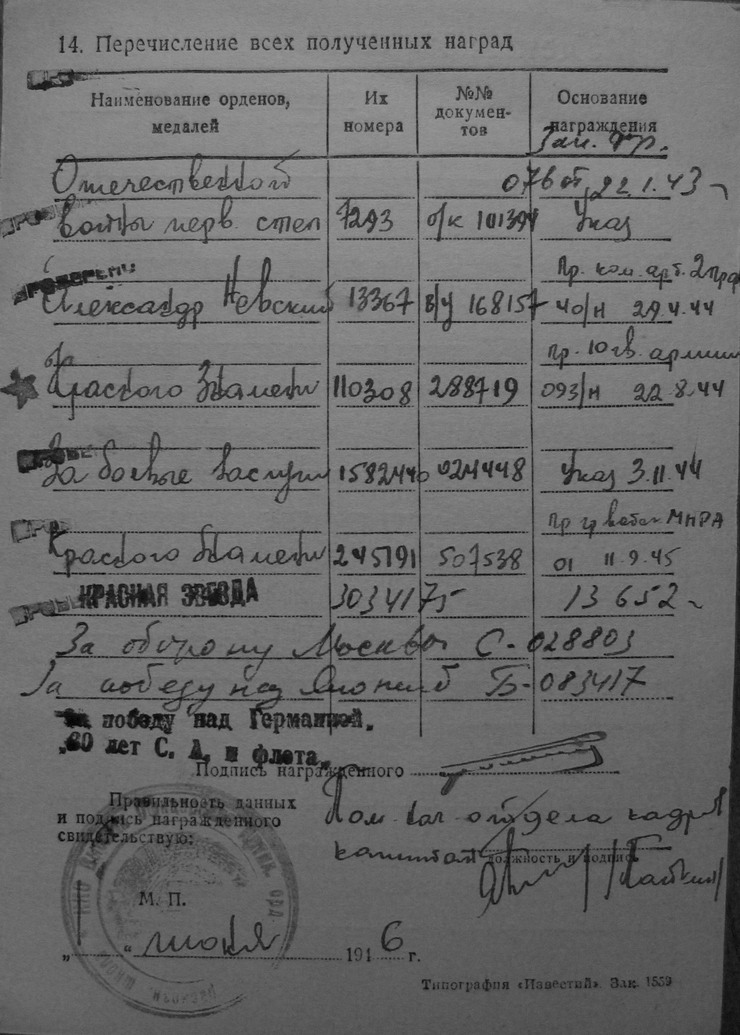 14. Перечисление всех полученных наград
Наименование орденов, медалей
Их номера
№№ документов
Основание награждения
Зап. фр.
Отечественной 076 от 22.1.43
войны перв. степ 7293 о/к 101394 Указ
Пр. ком. арт. 2 приб
Александр Невский 13367 в/у 168157 40/н 29.4.44
пр. 10 гв. армии
Красного Знамени 110308 288719 093/н 22.8.44
За боевые заслуги 1582440 024448 Указ 3.11.44
Красного Знамени 245191 507538 01 11.9.45
КРАСНАЯ ЗВЕЗДА 3034175 13.6.52
За оборону Москвы С-028803
За победу над Японией Б-083417
За победу над Германией.
30 лет С. А. и флота.
Подпись награжденного
Правильность данных
и подпись награжденного
свидетельствую:
Пом. нач. отдела кадров
капитан
должность и подпись
М. П.
„ “ июня 1916 г.
Типография «Известий». Зак. 1559